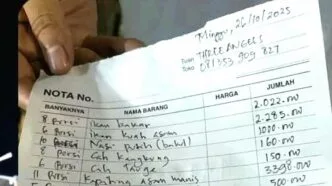 Minggu, 26/10/2025
Tuan THREE ANGELS
Toko 081353 909 827
NOTA No.
BANYAKNYA NAMA BARANG HARGA JUMLAH
8 Porsi Ikan Bakar 2.022.000
6 Porsi Ikan kuah asam 2.285.000
10 Porsi Nasi Putih (bakul) 1000.000
8 Porsi Cah Kangkung 160.000
6 Porsi Cah Tauge 150.000
11 Porsi Kepiting asam manis 3390.000
500.000